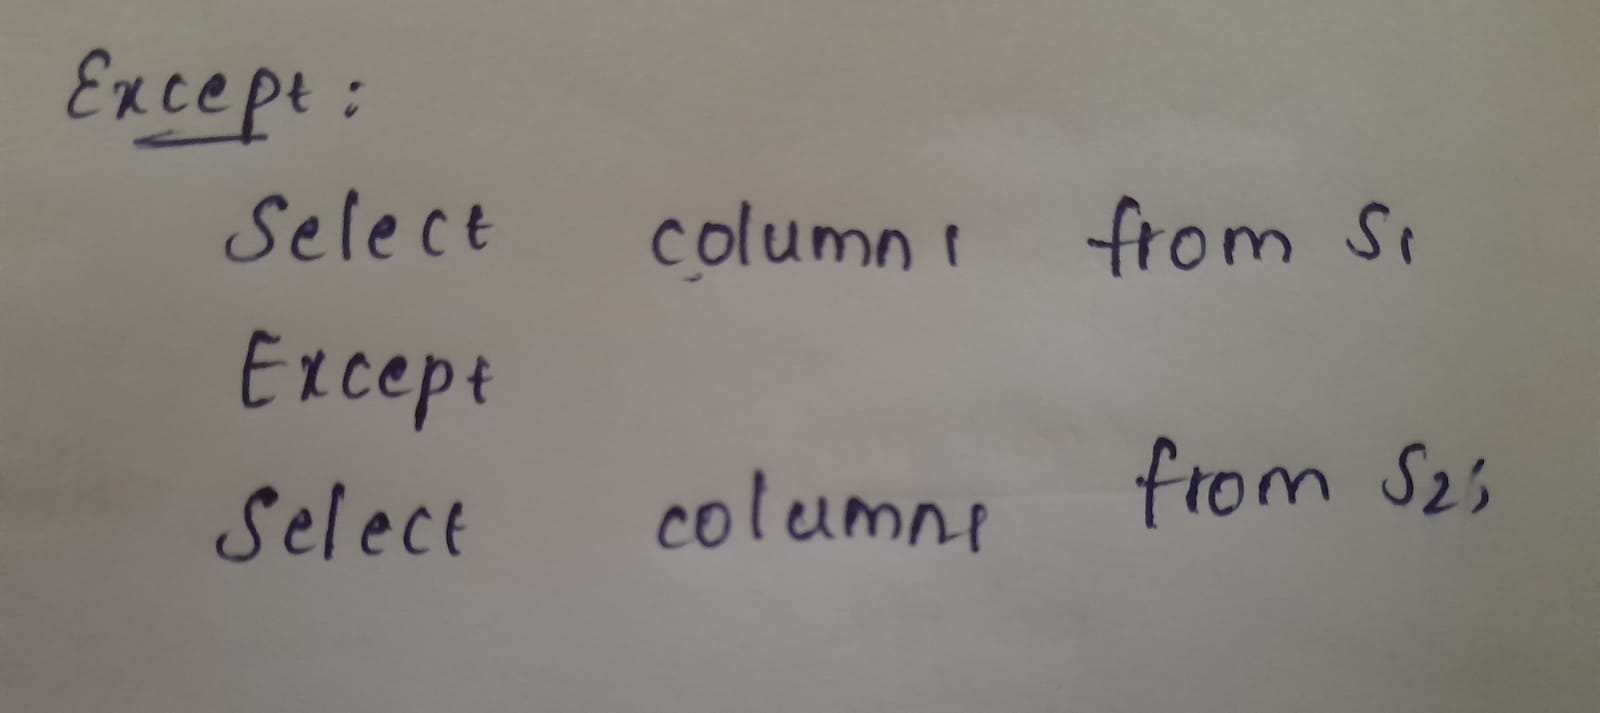 Except:
Select column1 from S1
Except
Select column1 from S2;